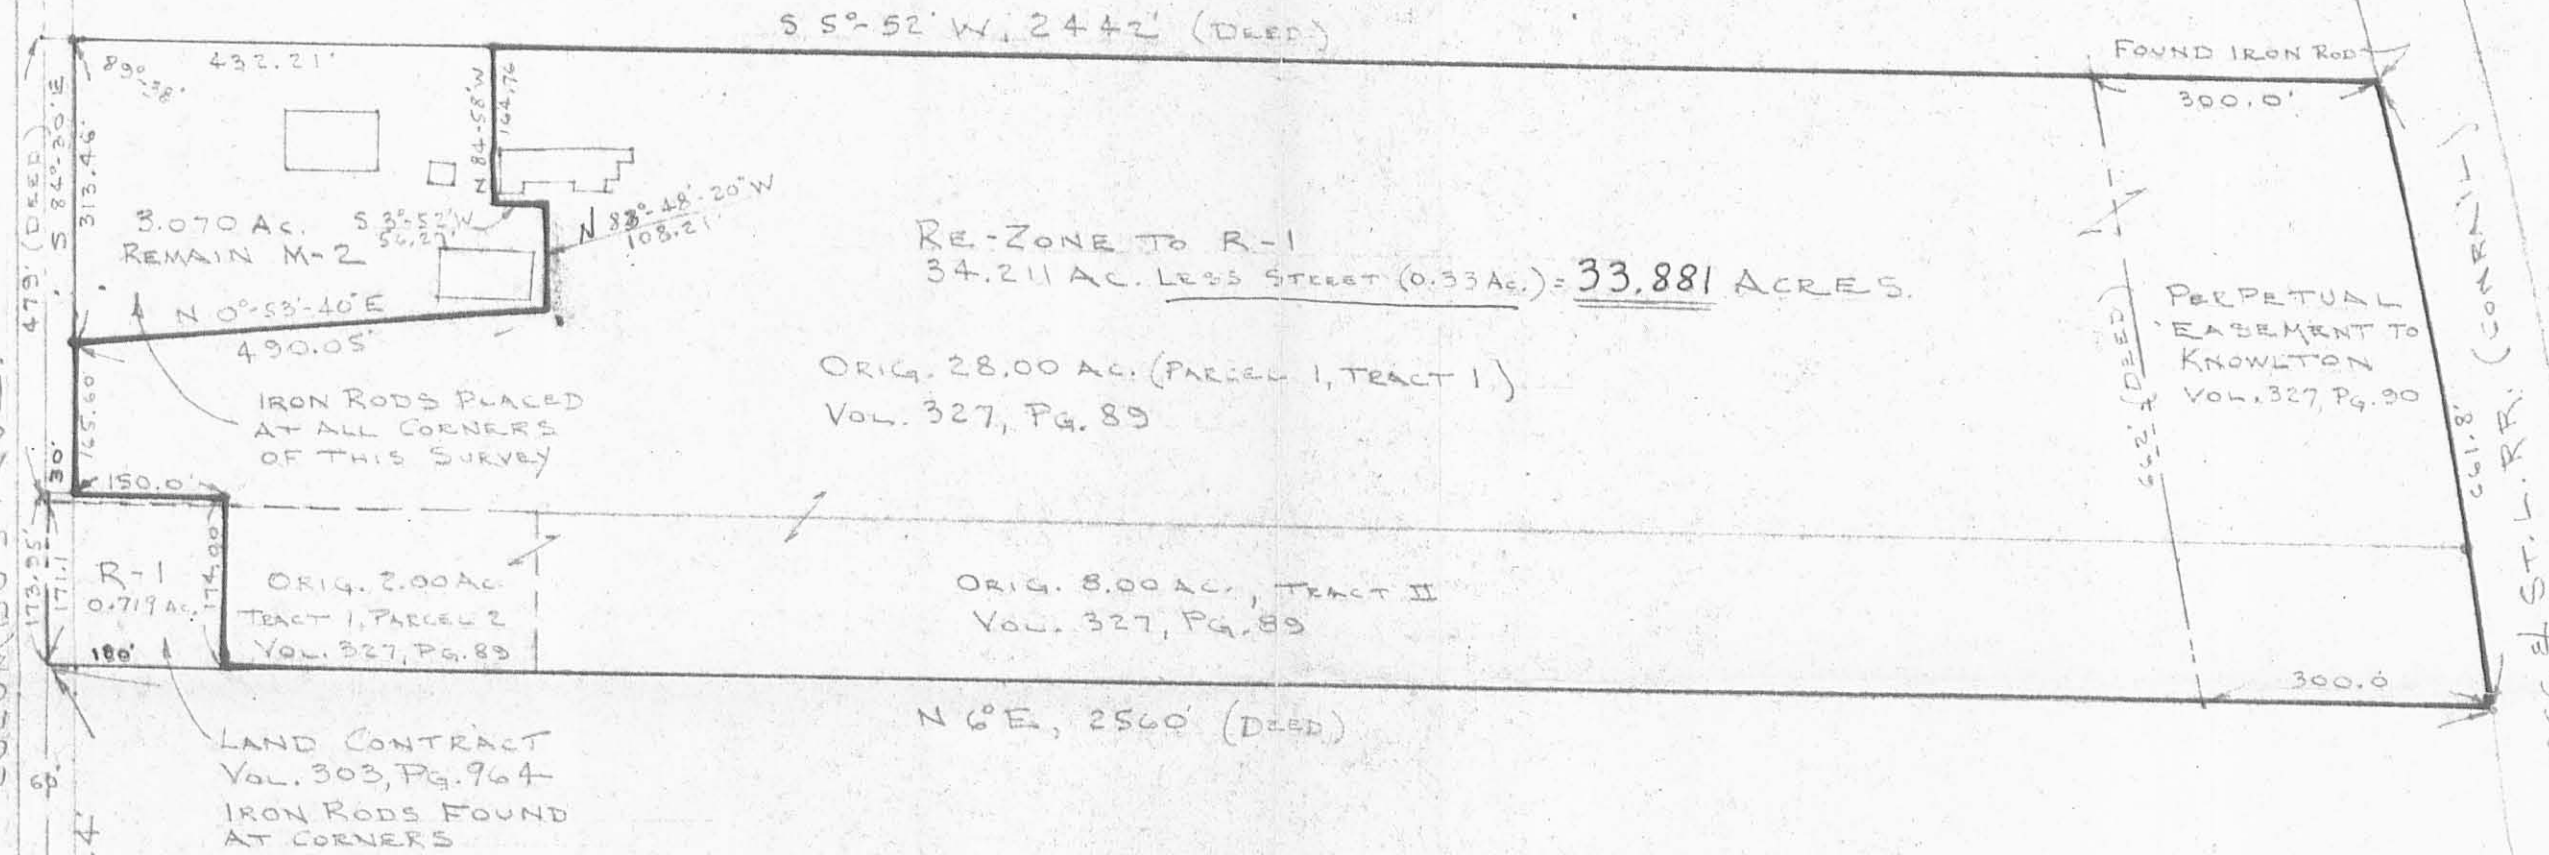 S 5°-52' W, 2442' (DEED)
FOUND IRON ROD
300.0'
432.21'
89°-38'
479' (DEED)
S 84°-30' E
313.46'
N 84-58' W
164.76
3.070 AC.
REMAIN M-2
S 3°-52' W
56.27'
N 83°-48'-20" W
108.21'
N 0°-53'-40" E
490.05'
RE-ZONE TO R-1
34.211 AC. LESS STREET (0.33 AC.) = 33.881 ACRES.
ORIG. 28.00 AC. (PARCEL 1, TRACT 1)
VOL. 327, PG. 89
662' (DEED)
PERPETUAL
EASEMENT TO
KNOWLTON
VOL. 327, PG. 90
661.8'
ST. L. RR. (CONRAIL)
IRON RODS PLACED
AT ALL CORNERS
OF THIS SURVEY
165.60'
30'
150.0'
173.95'
171.1
R-1
0.719 AC.
174.90'
180'
ORIG. 2.00 AC.
TRACT 1, PARCEL 2
VOL. 327, PG. 89
ORIG. 8.00 AC., TRACT II
VOL. 327, PG. 89
300.0
N 6° E, 2560' (DEED)
LAND CONTRACT
VOL. 303, PG. 964
IRON RODS FOUND
AT CORNERS
60'
4'